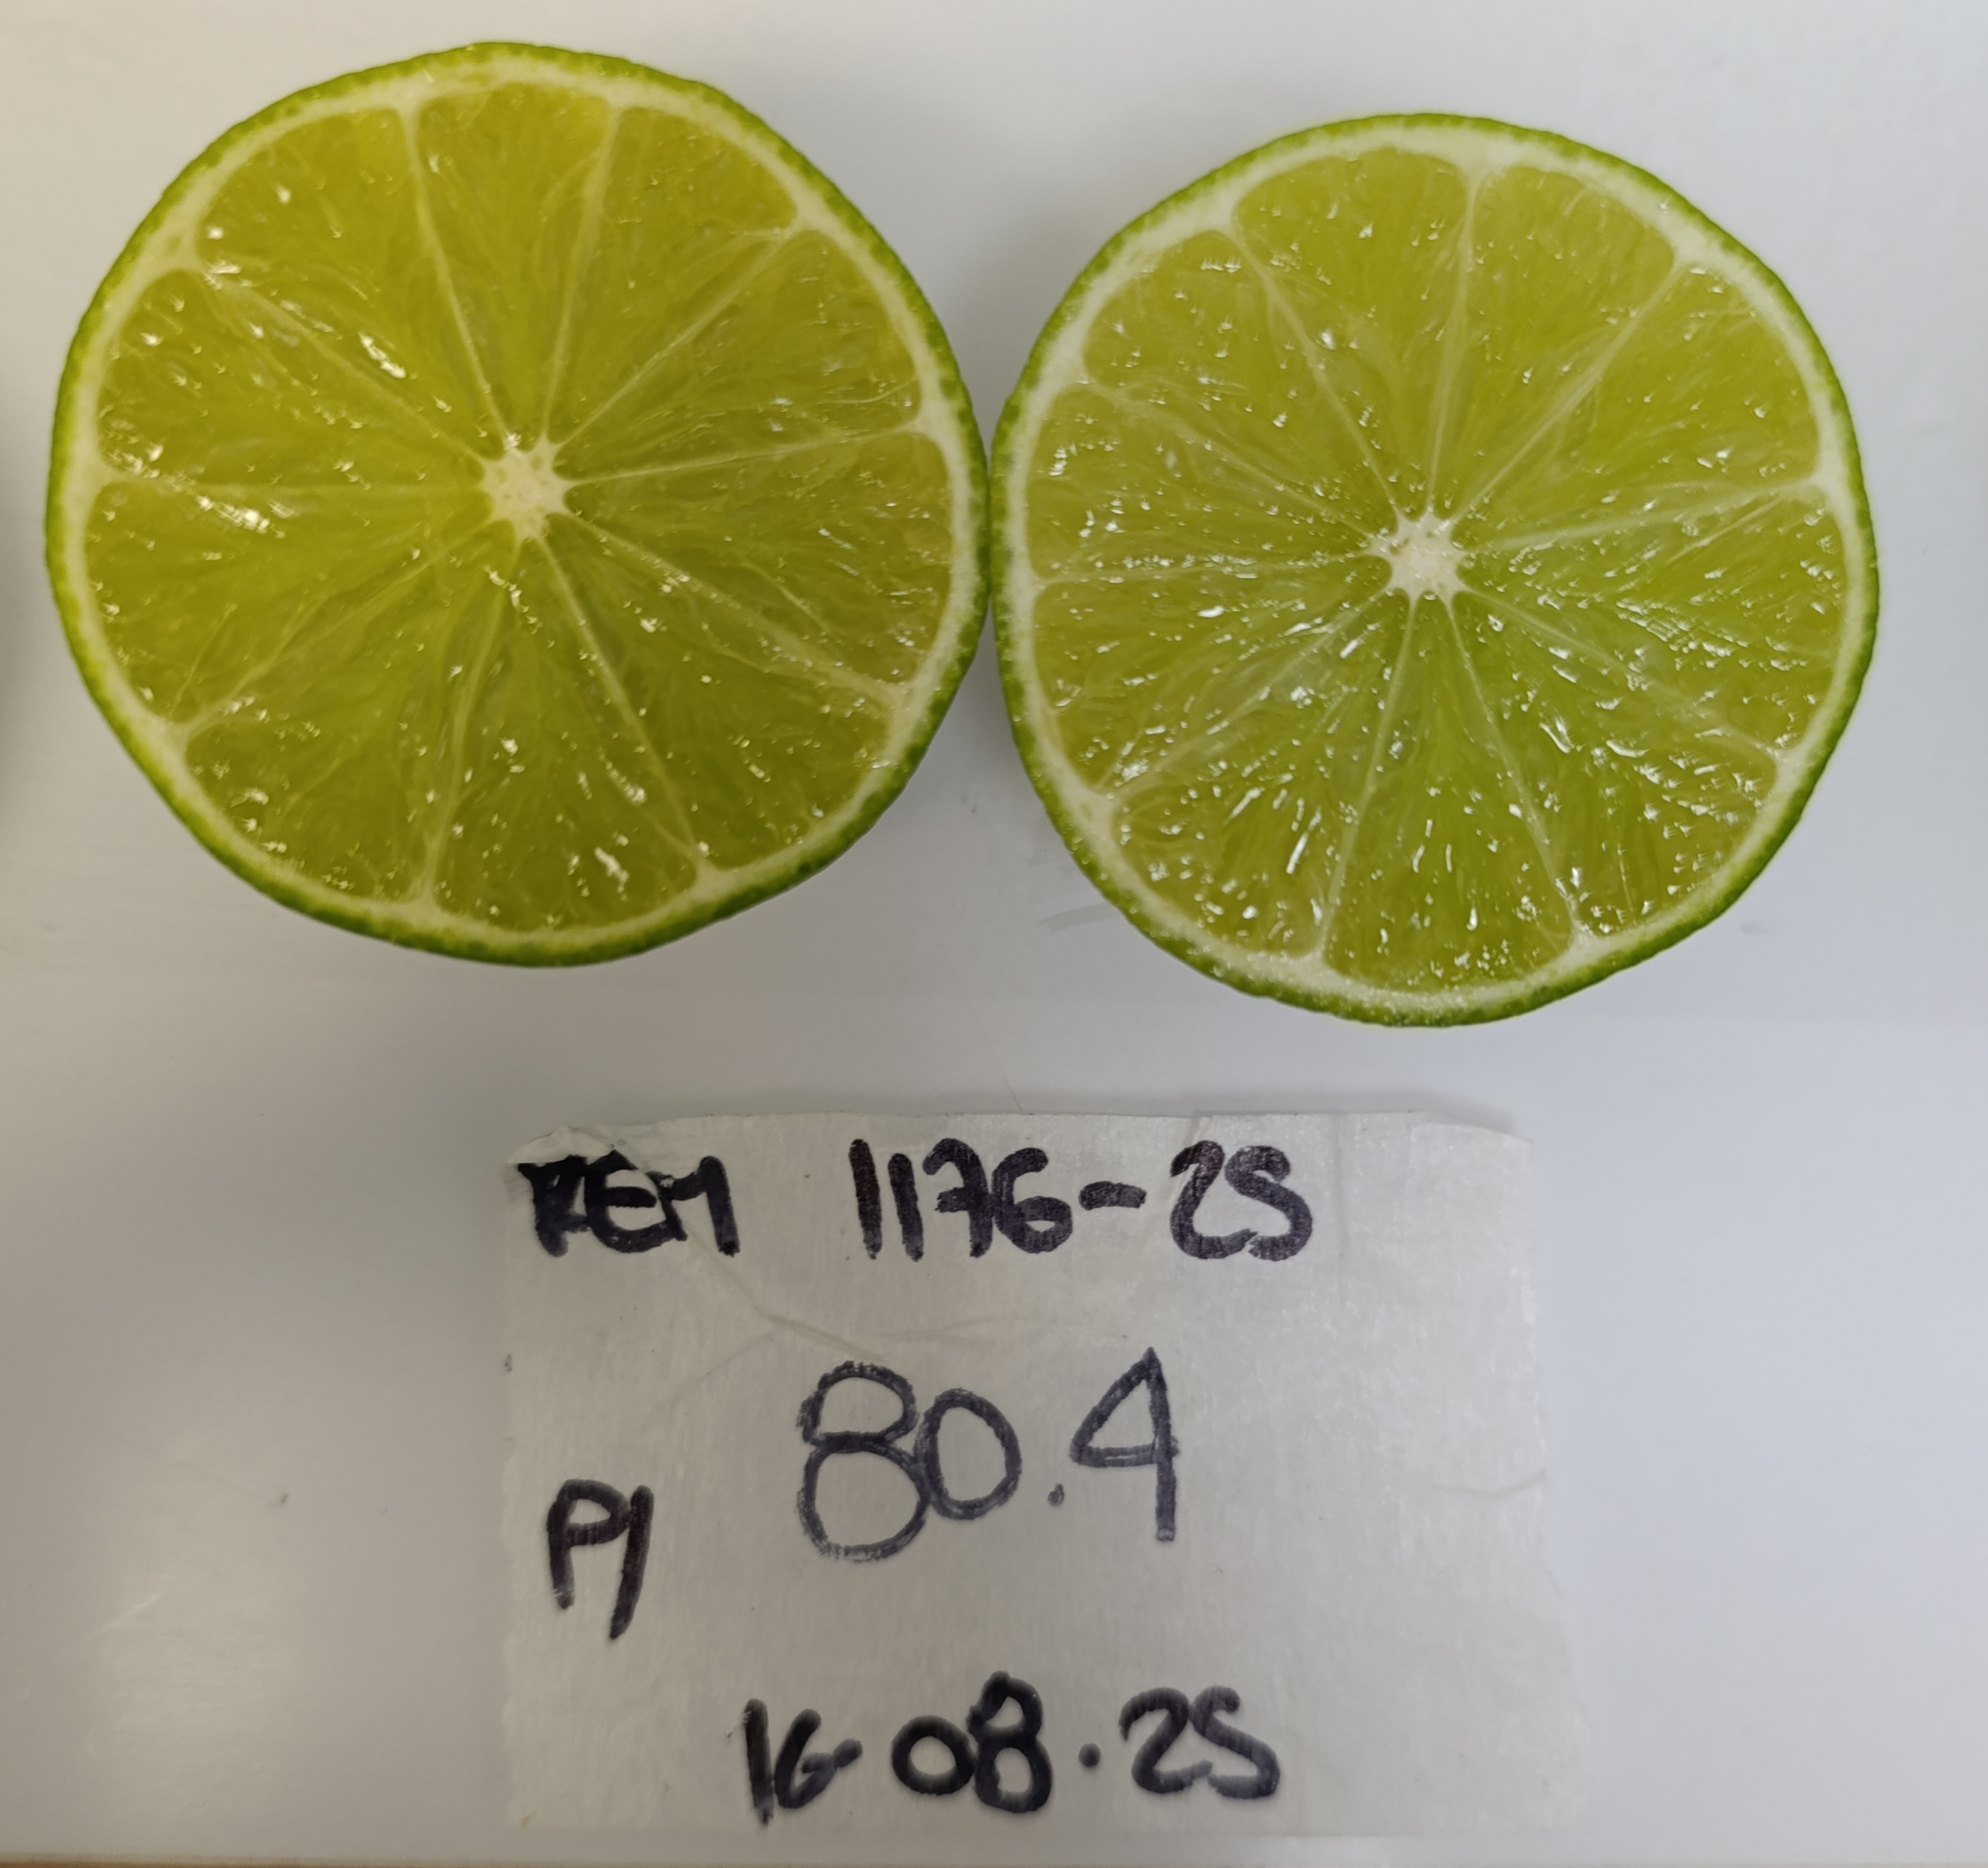 REM 1176-25
80.4
P1
16-08.25